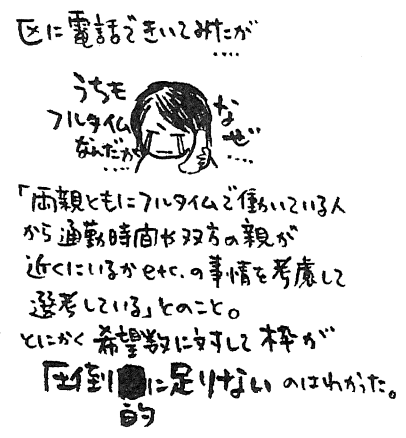 区に電話できいてみたが
‥‥
うちも
フルタイム
なんだが
‥‥
なぜ
‥‥
「両親ともにフルタイムで働いている人
から通勤時間や双方の親が
近くにいるかetc.の事情を考慮して
選考している」とのこと。
とにかく希望数に対して枠が
圧倒的に足りないのはわかった。